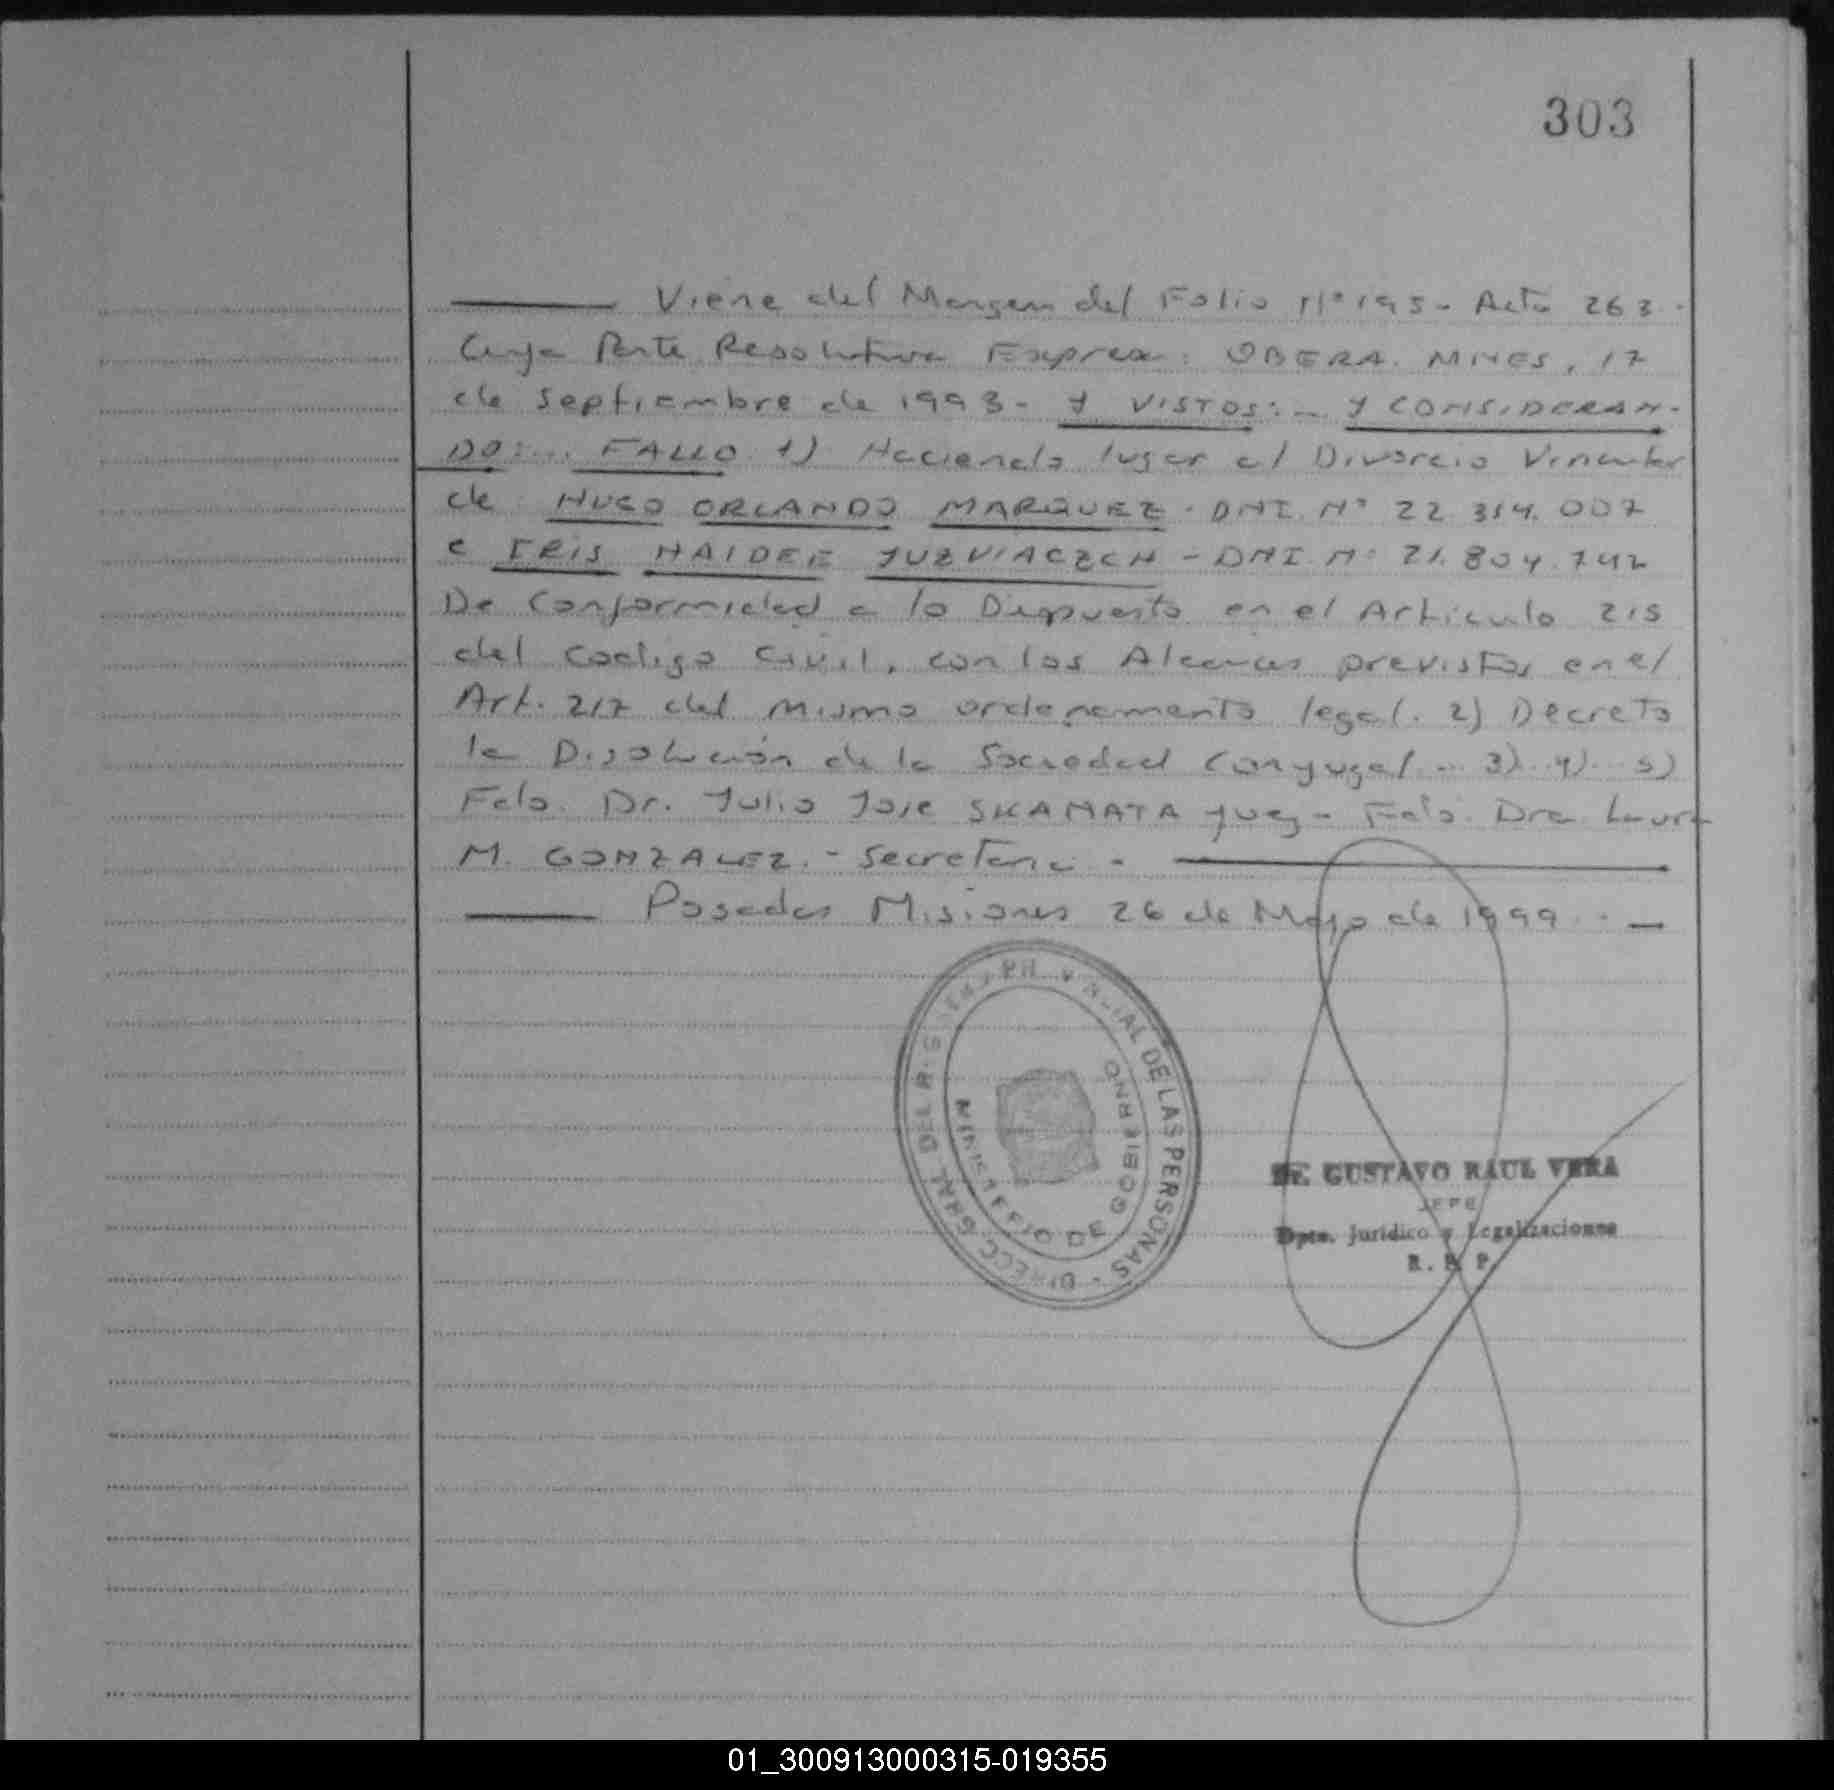 303
Viene del Margen del Folio Nº 195 - Acta 263 -
Cuya Parte Resolutiva Expresa: OBERA. MNES, 17
de Septiembre de 1993 - Y VISTOS: ... Y CONSIDERAN-
DO: ... FALLO 1) Haciendo lugar al Divorcio Vincular
de HUGO ORLANDO MARQUEZ - DNI. Nº 22 314. 007
e IRIS HAIDEE YUZVIACZCH - DNI. Nº 21. 804. 742
De Conformidad a lo Dispuesto en el Articulo 215
del Codigo Civil, con los Alcances previstos en el
Art. 217 del mismo ordenamento legal. 2) Decreto
la Disolución de la Sociedad Conyugal ... 3) 4) 5)
Fdo. Dr. Julio Jose SKANATA Juez - Fdo. Dra. Laura
M. GONZALEZ. - Secretaria -
Posadas Misiones 26 de Mayo de 1999. -
DIRECC. GRAL. DEL REGISTRO PROVINCIAL DE LAS PERSONAS -
MINISTERIO DE GOBIERNO
Dr. GUSTAVO RAUL VERA
JEFE
Dpto. Jurídico y Legalizaciones
R. P. P.
01_300913000315-019355